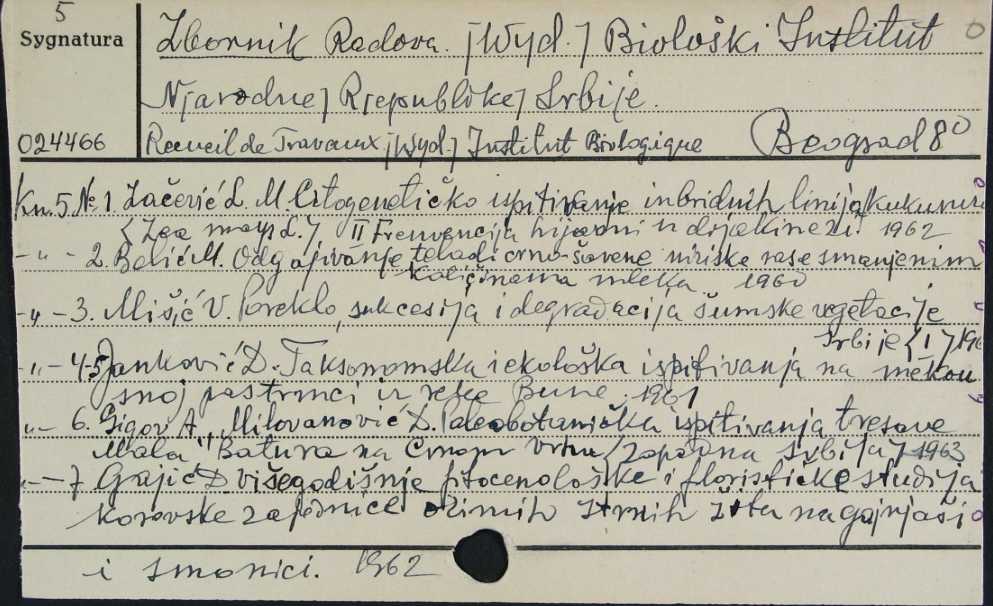 5
Sygnatura
Zbornik Radova. [Wyd.] Biološki Institut
N[arodne] R[epublike] Srbije.
024466
Recueil de Travaux [Wyd.] Institut Biologique Beograd 8°
Kn. 5. № 1. Začević L. M Citogenetičko ispitivanje inbridnih linija kukuruza
(Zea mays L.) II Frenvencija hijazmi u dijakinezi. 1962
-„- 2. Belić M. Odgajivanje teladi crno-šarene niziske rase smanjenim
količinama mleka 1960
-„- 3. Mišić V. Poreklo, sukcesija i degradacija šumske vegetacije
Srbije (I) 196
-„- 4-5 Janković D. Taksonomska i ekološka ispitivanja na mekou
snoj pastrmci iz reke Bune. 1961
-„- 6. Gigov A., Milovanović D. Paleobotanička ispitivanja tresave
Mala Batura na Crnom vrhu (zapadna Srbija) 1963
-„- 7 Gajić D. višegodišnje fitocenološke i florističke studija
korovske zajednice ozimih strnih žita na gajnjači
i smonici. 1962